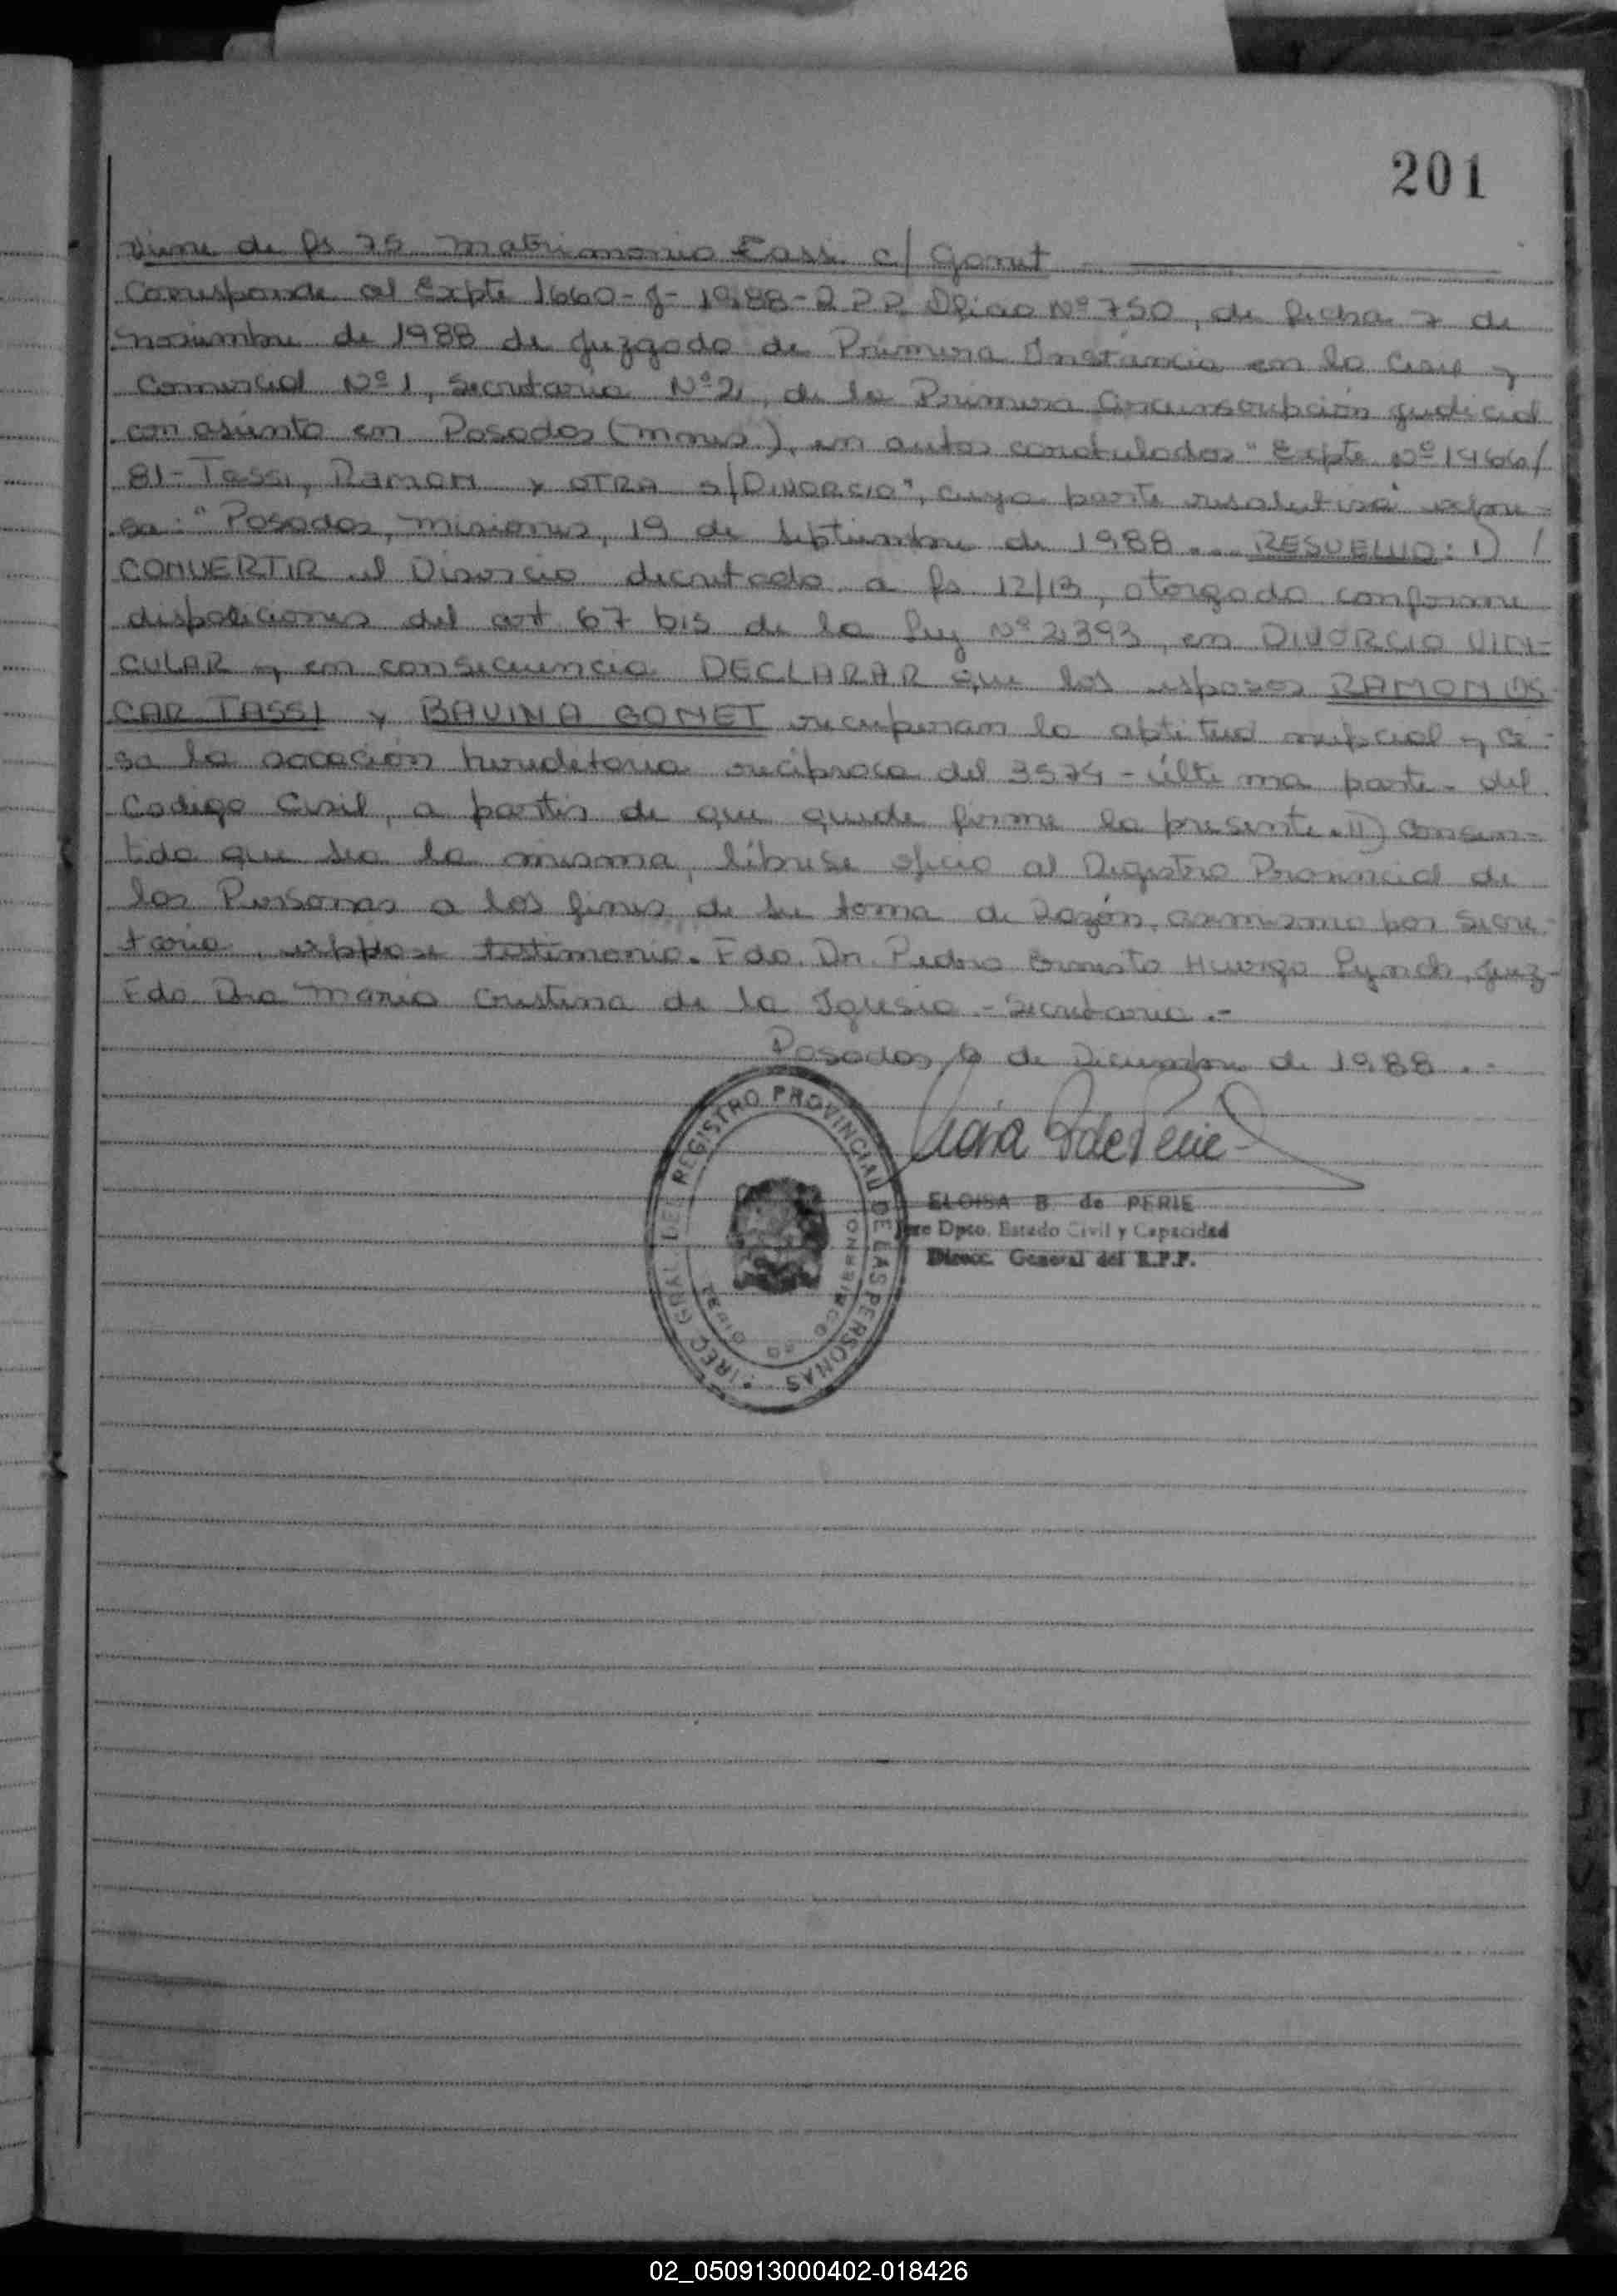 201
Viene de fs 75 Matrimonio Tassi c/ Gonet
Corresponde al Expte 1660-J-1988-R.P.P. Oficio Nº 750, de fecha 7 de
noviembre de 1988 de Juzgado de Primera Instancia en lo Civil y
Comercial Nº 1, Secretaria Nº 2, de la Primera Circunscripción Judicial
con asiento en Posadas (Mnes.), en autos caratulados "Expte Nº 1466/
81-Tassi, Ramon y OTRA s/DIVORCIO", cuya parte resolutiva expre-
sa: "Posadas, Misiones, 19 de septiembre de 1988... RESUELVO: I) /
CONVERTIR el Divorcio decretado a fs 12/13, otorgado conforme
disposiciones del art 67 bis de la ley Nº 2393, en DIVORCIO VIN-
CULAR y en consecuencia DECLARAR que los esposos RAMON OS-
CAR TASSI y BAUINA GONET recuperan la aptitud nupcial y ce-
sa la vocación hereditaria recíproca del 3574 - última parte - del
Codigo Civil, a partir de que quede firme la presente. II) Consen-
tida que sea la misma, líbrese oficio al Registro Provincial de
las Personas a los fines de su toma de Razón, asimismo por Secre-
taria, expidase testimonio. Fdo. Dr. Pedro Ernesto Huergo Lynch, Juez-
Fdo. Dra Maria Cristina de la Iglesia - Secretaria.-
Posadas, 6 de Diciembre de 1988.-
DIREC. GRAL. DEL REGISTRO PROVINCIAL DE LAS PERSONAS
ELOISA B. de PERIE
Jefe Dpto. Estado Civil y Capacidad
Direcc. General del R.P.P.
02_050913000402-018426